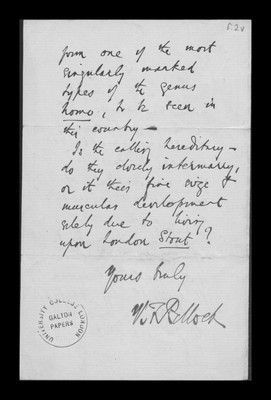 f.2v
form one of the most
singularly marked
types of the genus
homo, to be seen in
this country —
Is the calling hereditary —
do they closely intermarry,
or is their fine size &
muscular development
solely due to living
upon London Stout?
Yours truly
W. F. R. Pollock
UNIVERSITY COLLEGE LONDON
GALTON
PAPERS